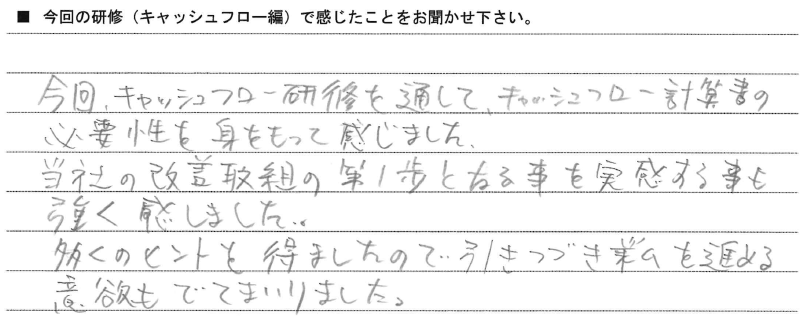 ■ 今回の研修（キャッシュフロー編）で感じたことをお聞かせ下さい。
今回、キャッシュフロー研修を通して、キャッシュフロー計算書の
必要性を身をもって感じました。
当社の改善取組の第1歩となる事を実感する事も
強く感しました。
多くのヒントを得ましたので、引きつづき業ムを進める
意欲もでてまいりました。